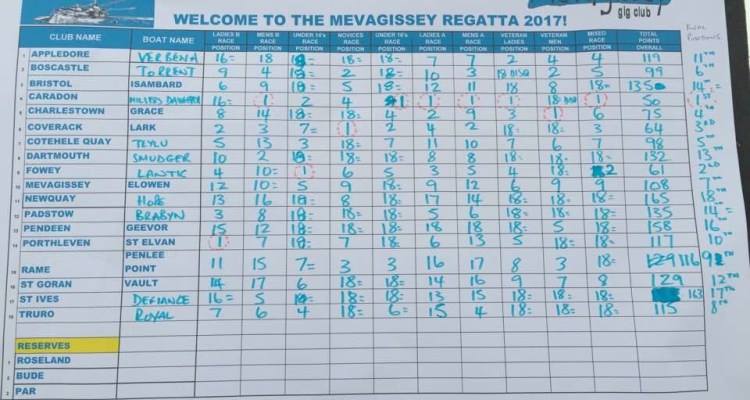 gig club
WELCOME TO THE MEVAGISSEY REGATTA 2017!
CLUB NAME BOAT NAME LADIES B RACE POSITION MENS B RACE POSITION UNDER 16's RACE POSITION NOVICES RACE POSITION UNDER 16's RACE POSITION LADIES A RACE POSITION MENS A RACE POSITION VETERAN LADIES POSITION VETERAN MEN POSITION MIXED RACE POSITION TOTAL POINTS OVERALL FINAL POSITIONS
1 APPLEDORE VERBENA 16= 18 18= 18= 18= 7 7 2 4 4 119 11TH
2 BOSCASTLE TORRENT 9 4 18= 2 18= 10 3 18 DISQ 2 5 99 6TH
3 BRISTOL ISAMBARD 6 9 18= 5 18= 12 11 18 8 18= 135 14TH=
4 CARADON MILLERS DAUGHTER 16= 1 2 4 1 1 1 1 18 1 50 1ST
5 CHARLESTOWN GRACE 8 14 18= 18= 4 2 9 3 1 6 75 4TH
6 COVERACK LARK 2 3 7= 1 2 4 2 18= 18= 3 64 3RD
7 COTEHELE QUAY TEYLU 5 13 3 18= 7 11 10 7 6 7 98 5TH
8 DARTMOUTH SMUDGER 10 2 18= 18= 18= 8 8 18= 18= 18= 132 13TH
9 FOWEY LANTIC 4 10= 1 6 5 3 5 4 18= 2 61 2ND
10 MEVAGISSEY ELOWEN 12 10= 5 9 18= 9 12 6 9 9 108 7TH
11 NEWQUAY HOPE 13 16 18= 8 18= 17 14 18= 18= 18= 165 18TH
12 PADSTOW BRABYN 3 8 18= 18= 18= 5 6 18= 18= 18= 135 14TH=
13 PENDEEN GEEVOR 15 12 18= 18= 18= 18 18 18= 5 18= 158 16TH
14 PORTHLEVEN ST ELVAN 1 7 18= 7 18= 6 13 5 18= 18= 117 10TH
15 RAME PENLEE POINT 11 15 7= 3 3 16 17 8 3 18= 129 116 9TH
16 ST GORAN VAULT 14 17 6 18= 18= 14 16 9 7 8 129 12TH
17 ST IVES DEFIANCE 16= 5 18= 18= 18= 13 15 18= 18= 18= 163 17TH
18 TRURO ROYAL 7 6 4 18= 6= 15 4 18= 18= 18= 115 8TH
RESERVES
1 ROSELAND
2 BUDE
3 PAR